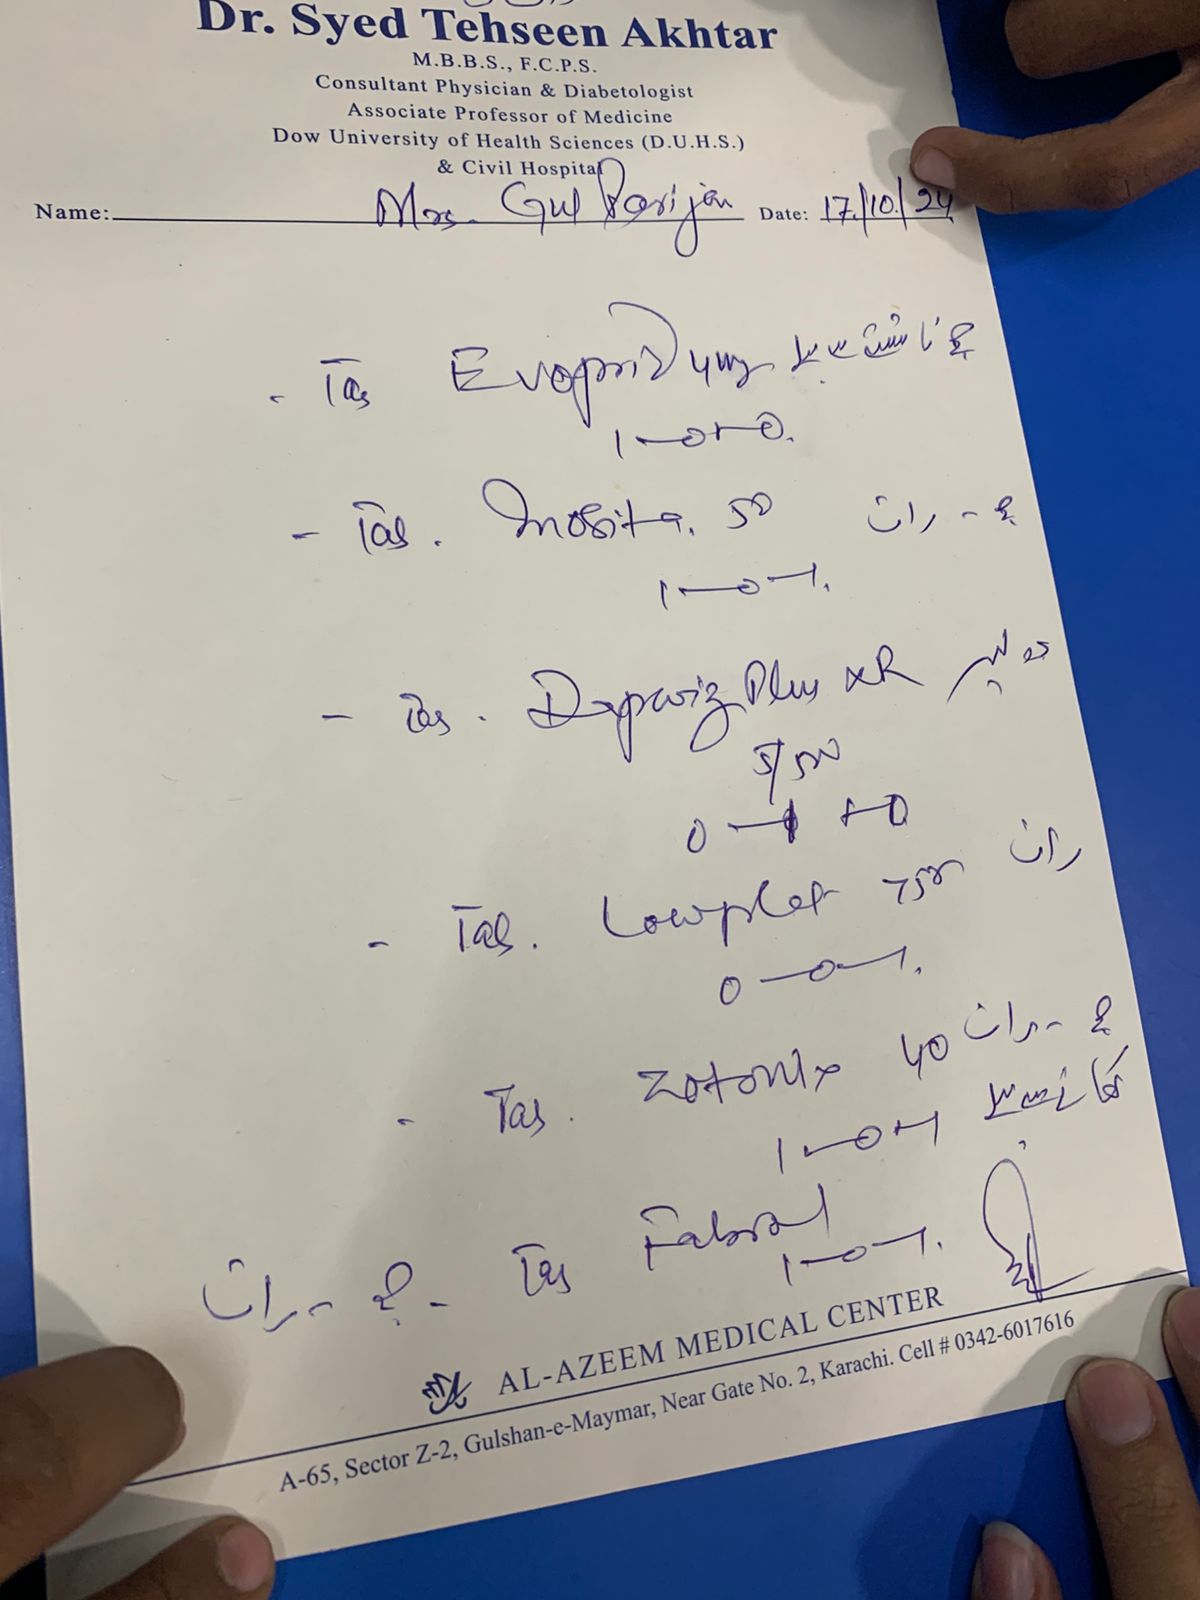 Dr. Syed Tehseen Akhtar
M.B.B.S., F.C.P.S.
Consultant Physician & Diabetologist
Associate Professor of Medicine
Dow University of Health Sciences (D.U.H.S.)
& Civil Hospital
Name: Mrs. Gul Date: 17/10/24
- Tab 4mg ناشتے سے
1-0+0.
- Tab. Inosita. 50 صبح - رات
1-0-1.
- Tab. Plus XR دوپہر
5/500
0-1+0
- Tab. Lowplat 75m رات
0-0-1.
- Tab. Zotonix 40 صبح - رات
1-0-1 کھانے سے
رات - صبح - Tab
1-0-1.
AL-AZEEM MEDICAL CENTER
A-65, Sector Z-2, Gulshan-e-Maymar, Near Gate No. 2, Karachi. Cell # 0342-6017616